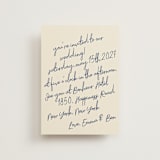 you're invited to our
wedding!
saturday, may 15th, 2027
at five o'clock in the afternoon.
See you at Bonheur Hotel
1850, Happiness Road
New York, New York
Love, Emma & Ben